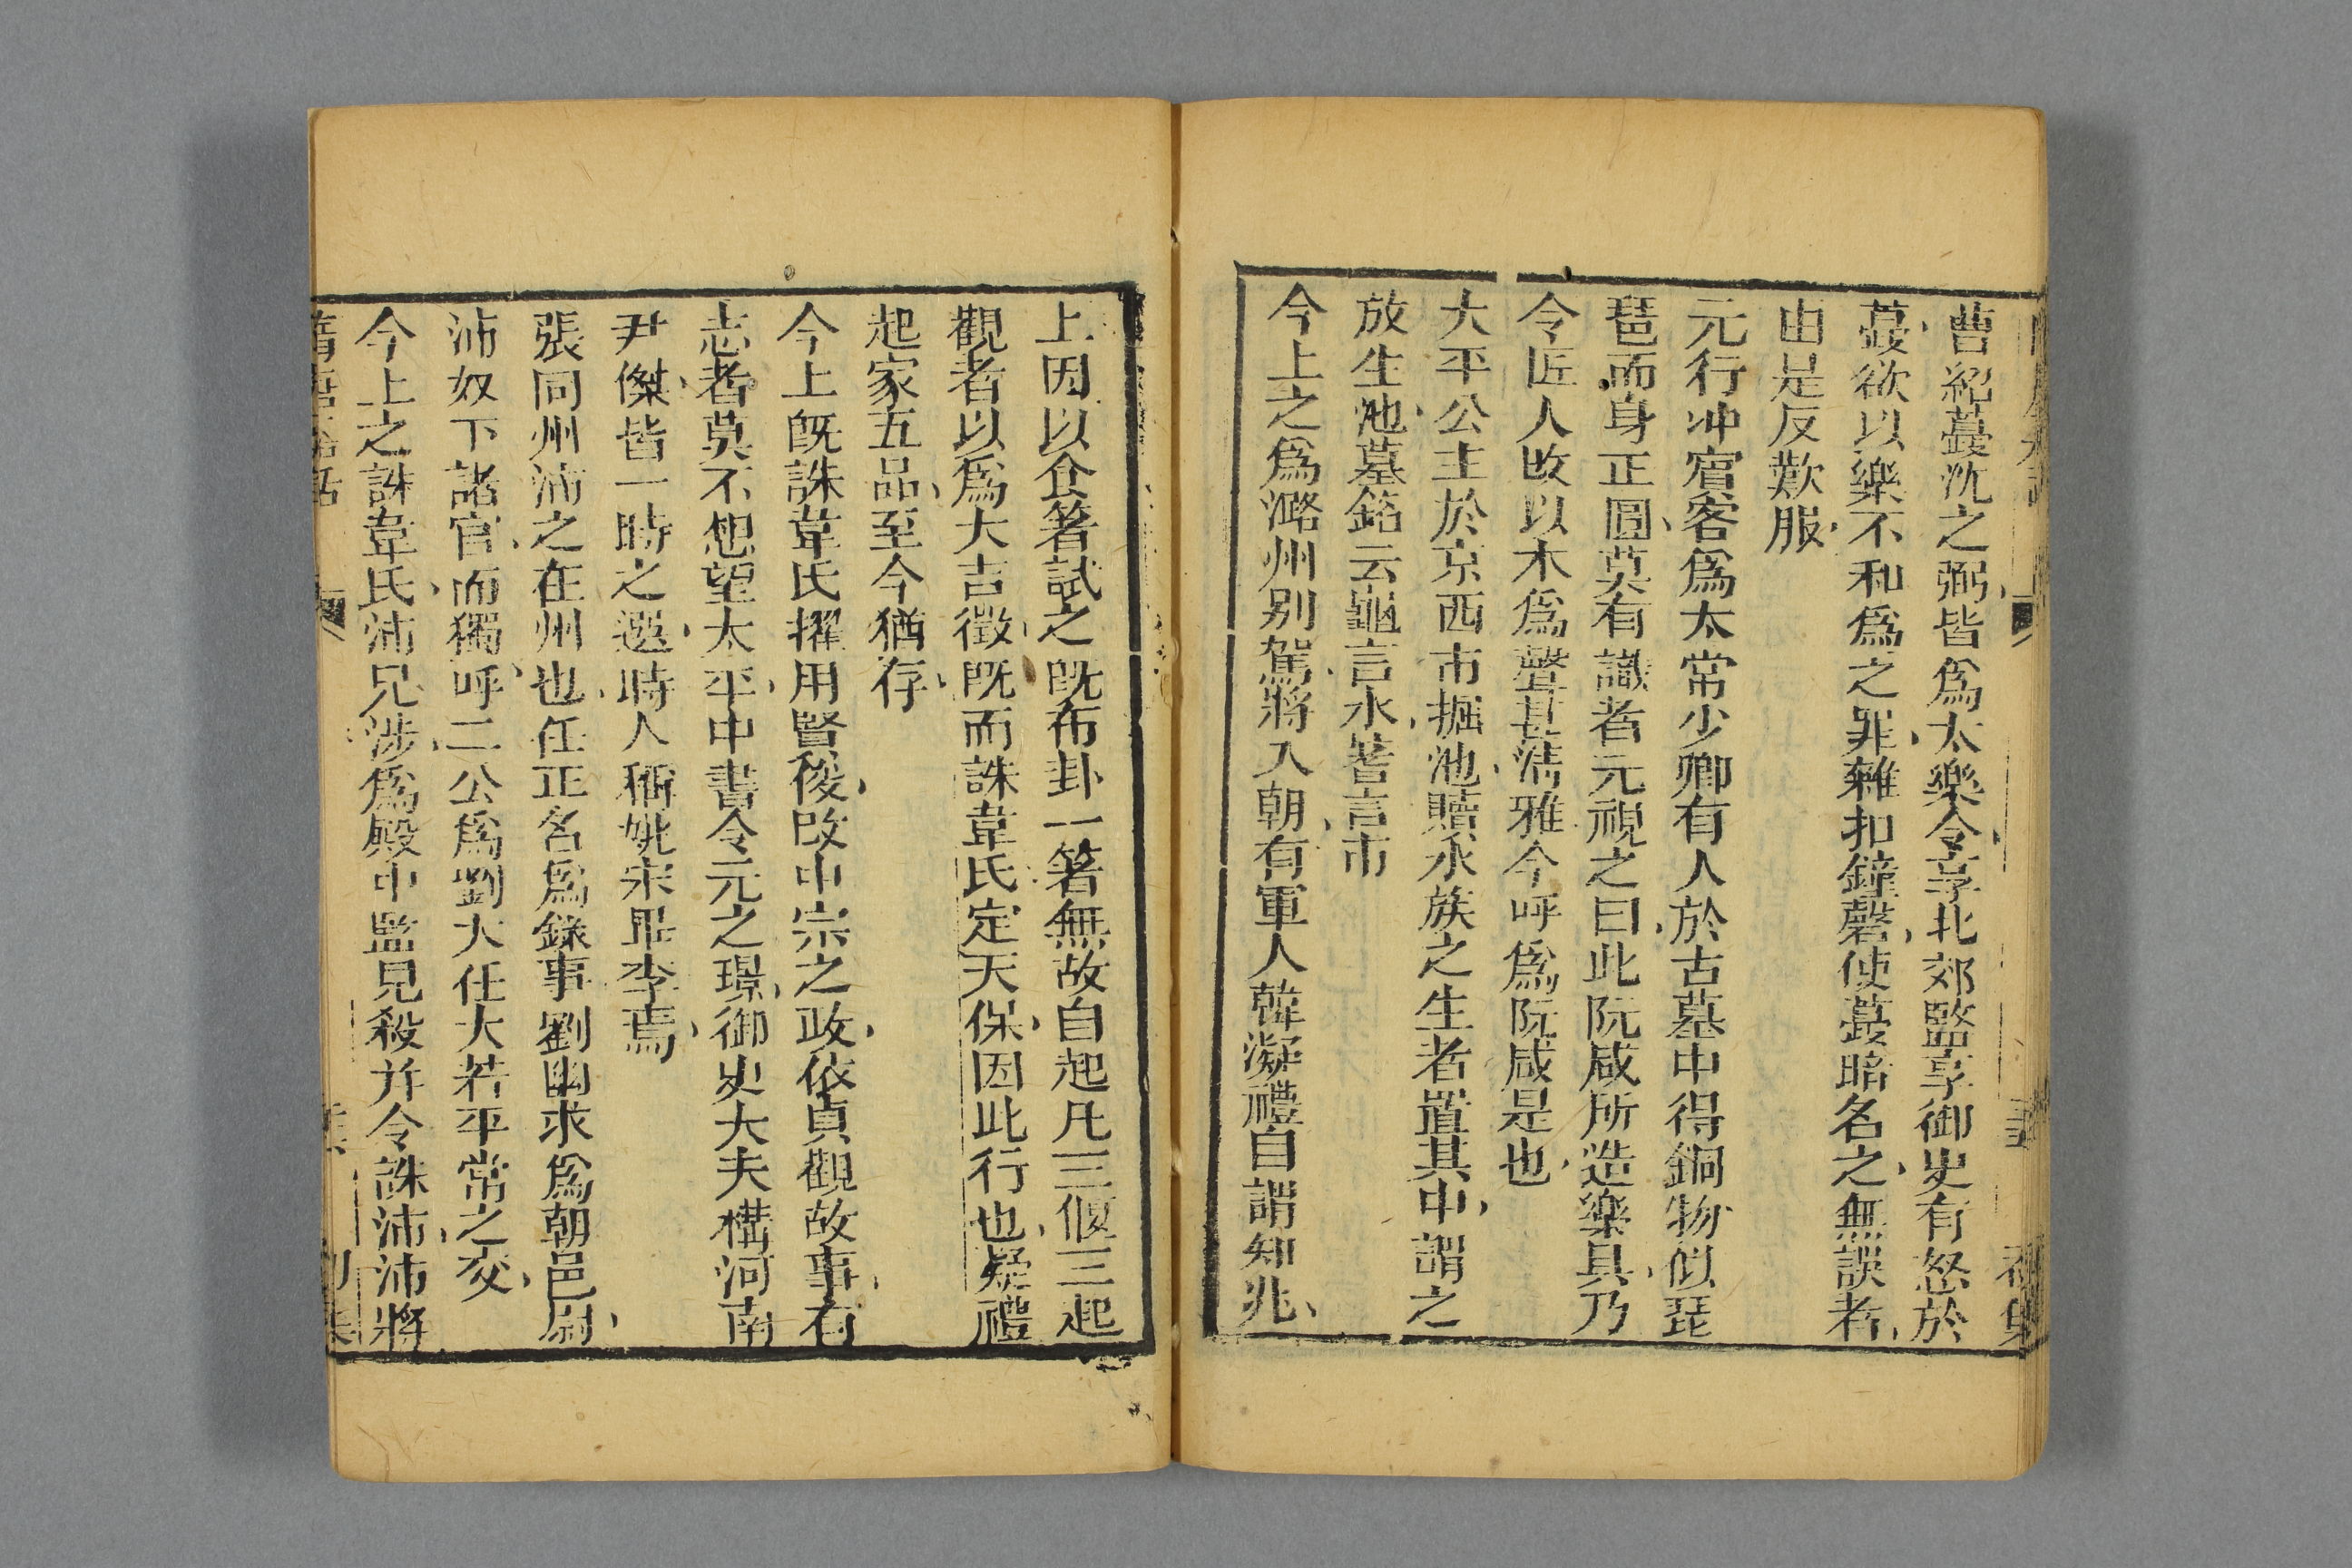 曹紹夔沈之弼皆爲太樂令享北郊監享御史有怒於
夔欲以樂不和爲之罪雜扣鐘磬使夔暗名之無誤者
由是反歎服
元行冲賔客爲太常少卿有人於古墓中得銅物似琵
琶而身正圓莫有識者元視之曰此阮咸所造樂具乃
令匠人改以木爲聲甚清雅今呼爲阮咸是也
大平公主於京西市掘池贖水族之生者置其中謂之
放生池墓銘云龜言水蓍言市
今上之爲潞州别駕將入朝有軍人韓凝禮自謂知兆
上因以食箸試之既布卦一箸無故自起凡三偃三起
觀者以爲大吉徵既而誅韋氏定天保因此行也凝禮
起家五品至今猶存
今上既誅韋氏擢用賢俊改中宗之政依貞觀故事有
志者莫不想望太平中書令元之璟御史大夫構河南
尹傑皆一時之選時人稱姚宋畢李焉
張同州沛之在州也任正名爲錄事劉幽求爲朝邑尉
沛奴下諸官而獨呼二公爲劉大任大若平常之交
今上之誅韋氏沛兄涉爲殿中監見殺并令誅沛沛將
隋唐嘉話